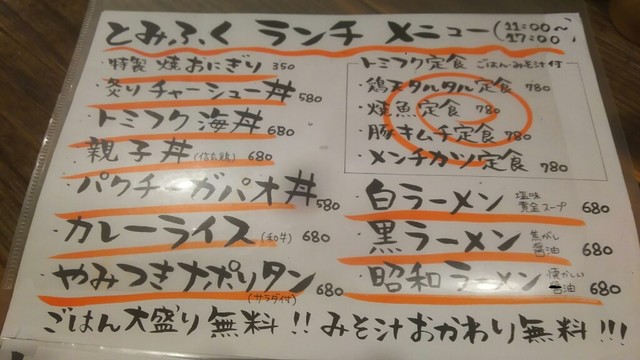 とみふく ランチ メニュー (11:00〜17:00)
・特製 焼おにぎり 350
・炙りチャーシュー丼 580
・トミフク海丼 680
・親子丼 (信玄鶏) 680
・パクチーガパオ丼 580
・カレーライス (和牛) 680
・やみつきナポリタン (サラダ付) 680
トミフク定食 ごはん・みそ汁付
・鶏天タルタル定食 780
・焼魚定食 780
・豚キムチ定食 780
・メンチカツ定食 780
・白ラーメン 塩味 黄金スープ 680
・黒ラーメン 焦がし醤油 680
・昭和ラーメン 懐かしい 醤油 680
ごはん大盛り無料!! みそ汁おかわり無料!!!